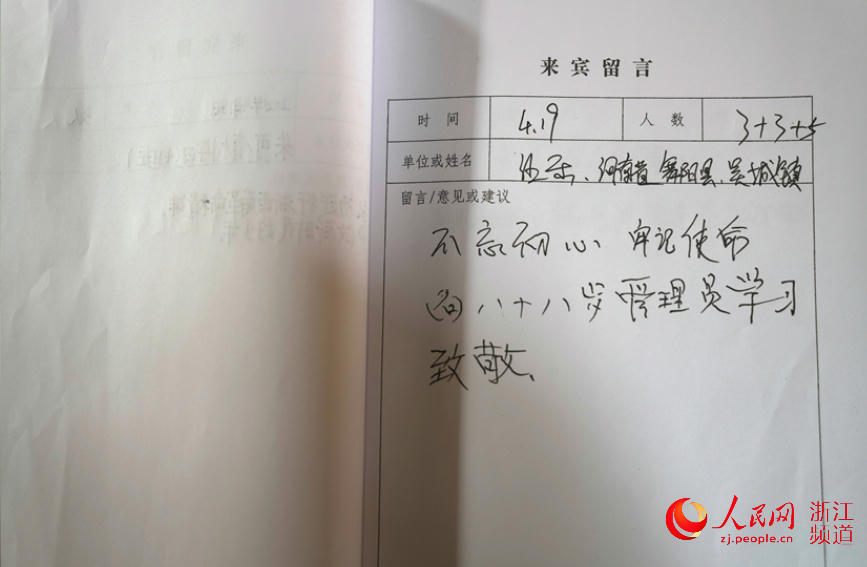 来宾留言
来宾留言
时间 4.19 人数 3+3+5
单位或姓名 河南省舞阳县、吴城镇
留言/意见或建议
不忘初心 牢记使命
向八十八岁管理员学习
致敬、
人民网 浙江频道
zj.people.cn